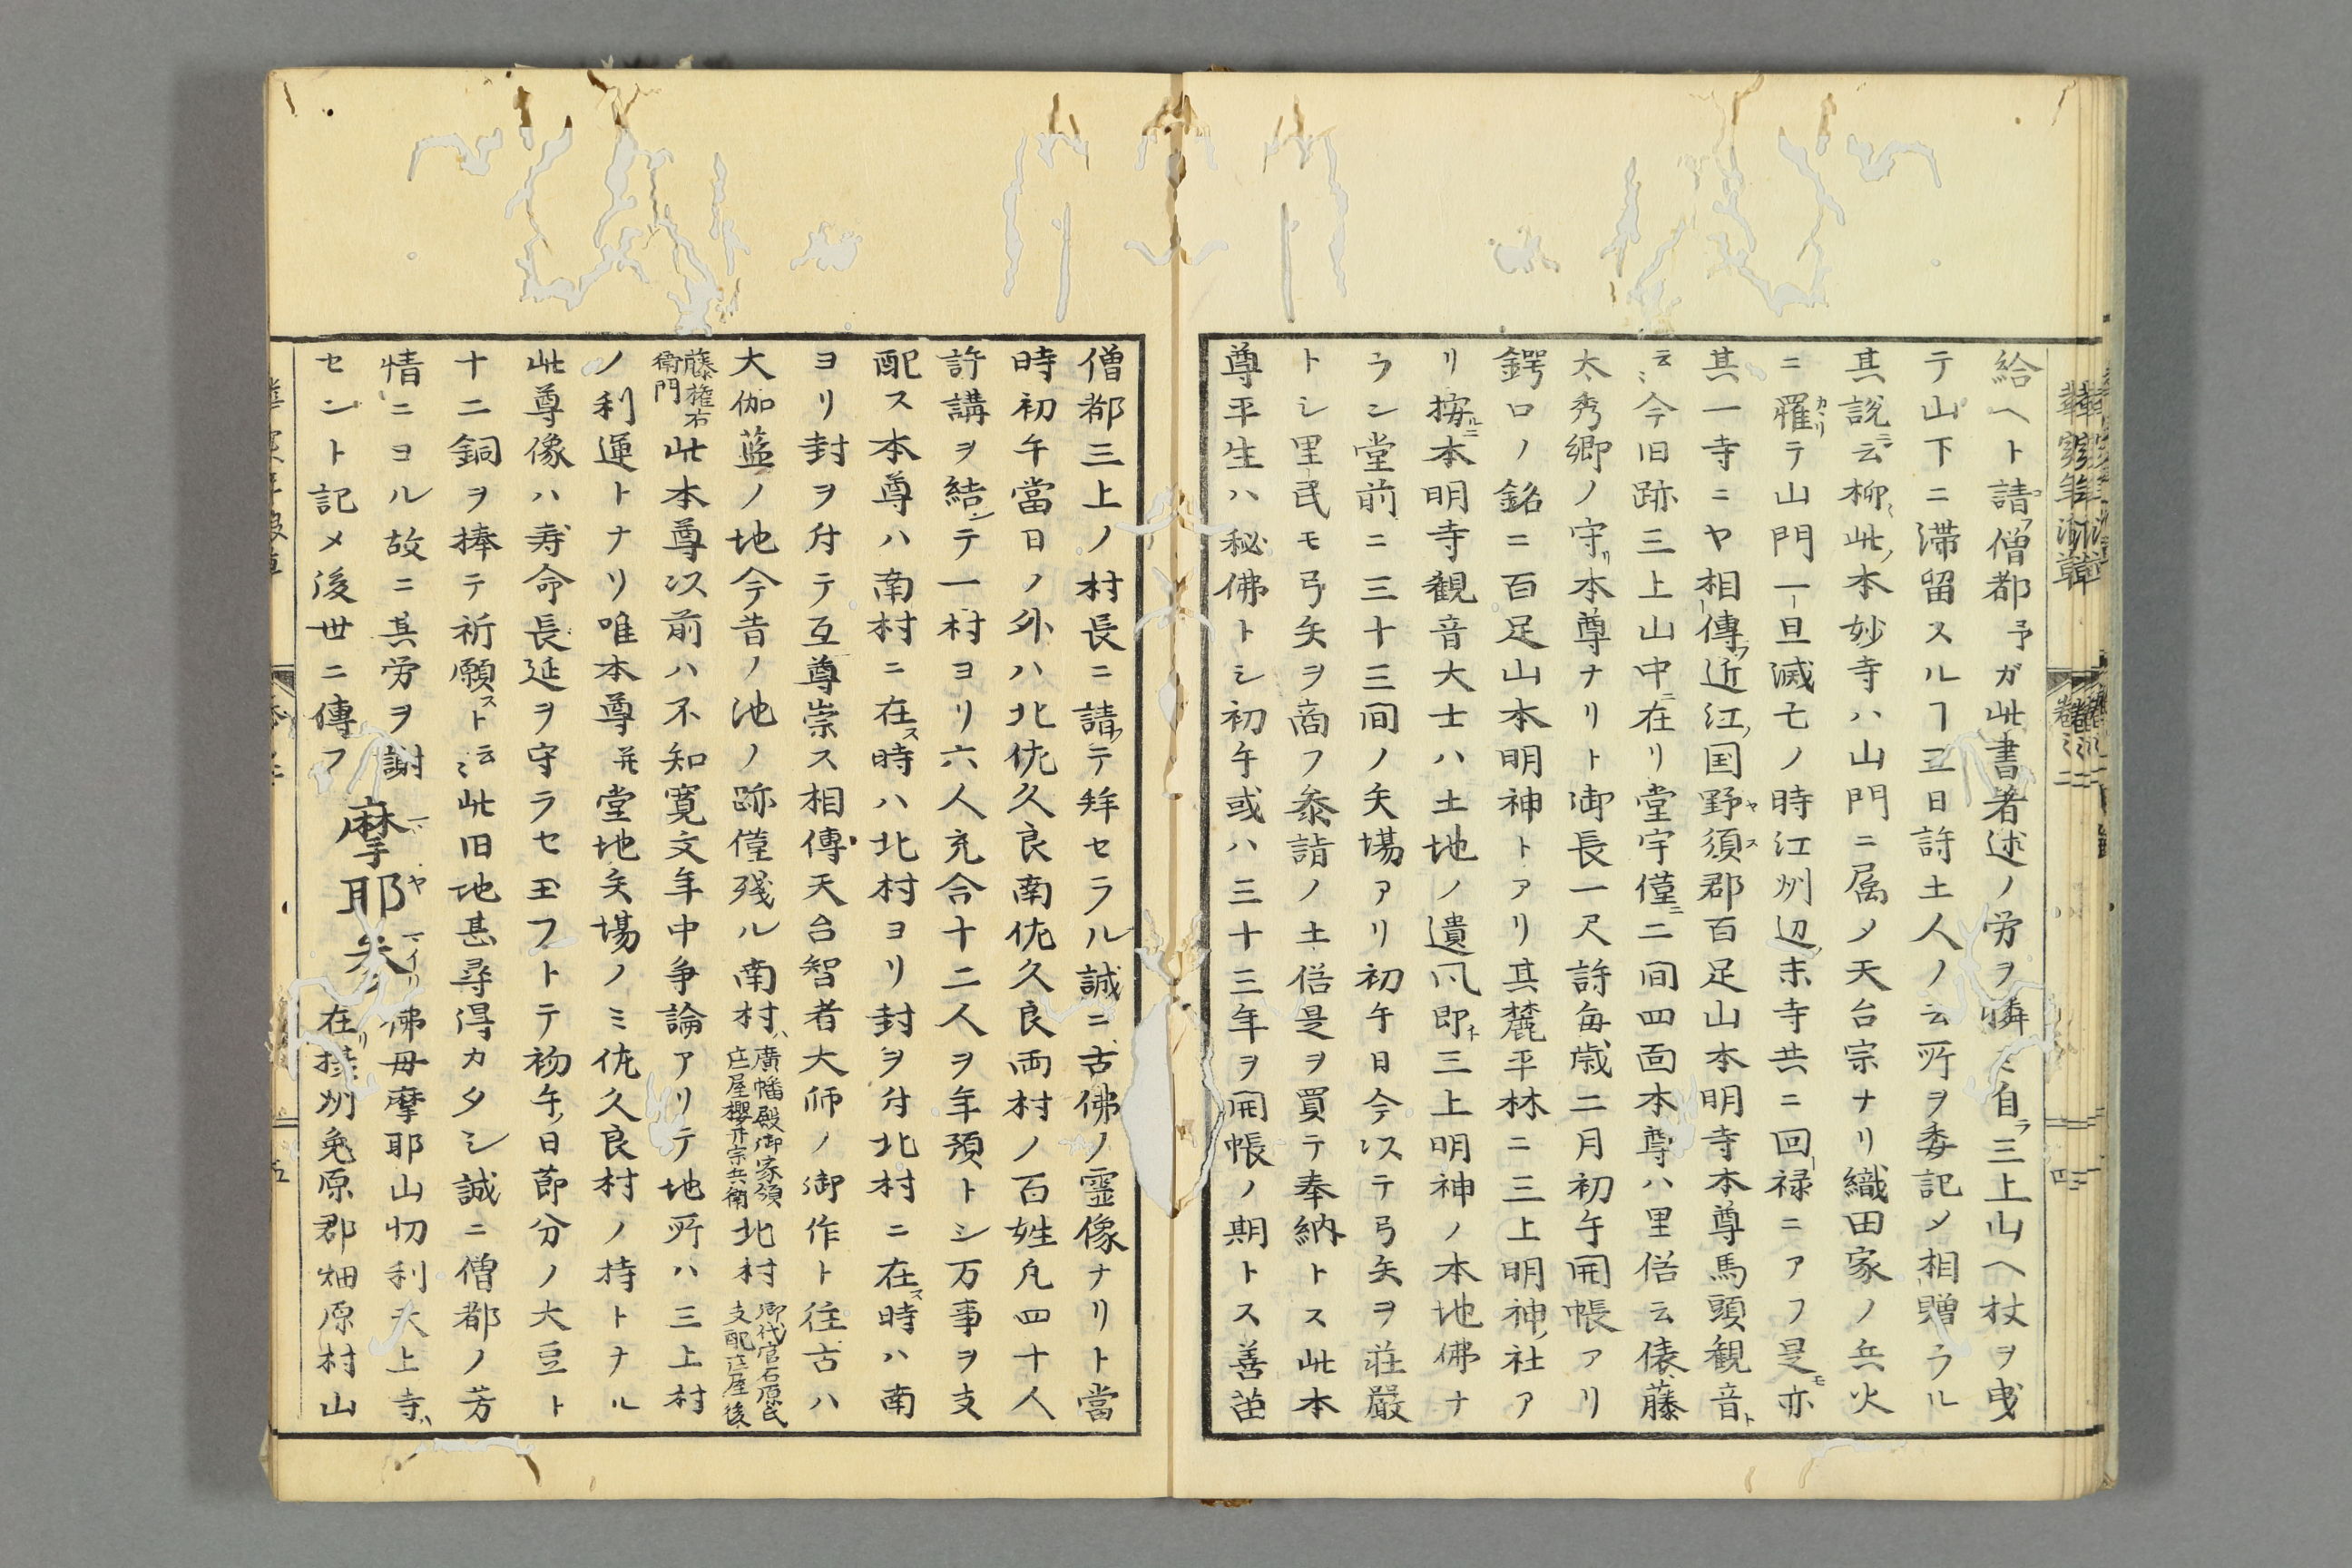 給ヘト請フ僧都予ガ此書著述ノ労ヲ憐ミ自ラ三上山ヘ杖ヲ曳
テ山下ニ滞留スルヿ五日許土人ノ云所ヲ委記メ相贈ラル
其説ニ云柳此ノ本妙寺ハ山門ニ属メ天台宗ナリ織田家ノ兵火
ニ罹カヽリテ山門一旦滅亡ノ時江州辺末寺共ニ回禄ニアフ是モ亦
其一寺ニヤ相傳フ近江ノ国野須ヤス郡百足山本明寺本尊馬頭観音ト
云ミ今旧跡三上山中ニ在リ堂宇僅ニ二間四面本尊ハ里俗云俵藤
太秀郷ノ守リ本尊ナリト御長一尺許毎歳二月初午開帳アリ
鍔口ノ銘ニ百足山本明神トアリ其麓平林ニ三上明神ノ社ア
リ按ルニ本明寺観音大士ハ土地ノ遺凨即ト三上明神ノ本地佛ナ
ラン堂前ニ三十三間ノ矢場アリ初午日今以テ弓矢ヲ荘嚴
トシ里民モ弓矢ヲ商フ叅詣ノ土俗是ヲ買テ奉納トス此本
尊平生ハ秘佛トシ初午或ハ三十三年ヲ開帳ノ期トス善苗
僧都三上ノ村長ニ請テ拜セラル誠ニ古佛ノ霊像ナリト當
時初午當日ノ外ハ北佐久良南佐久良両村ノ百姓凡四十人
許講ヲ結ンテ一村ヨリ六人充合十二人ヲ年預トシ万事ヲ支
配ス本尊ハ南村ニ在ス時ハ北村ヨリ封ヲ付北村ニ在ス時ハ南
ヨリ封ヲ付テ互尊崇ス相傳天台智者大師ノ御作ト往古ハ
大伽藍ノ地今昔ノ池ノ跡僅残ル南村ハ廣幡殿御家領庄屋櫻井宗兵衛北村御代官石原氏支配庄屋後
藤権右衛門此本尊以前ハ不知寛文年中争論アリテ地所ハ三上村
ノ利運トナリ唯本尊并堂地矢場ノミ佐久良村ノ持トナル
此尊像ハ寿命長延ヲ守ラセ玉フトテ初午ノ日節分ノ大豆ト
十二銅ヲ捧テ祈願ストミ云此旧地甚尋得カタシ誠ニ僧都ノ芳
情ニヨル故ニ其労ヲ謝
セント記メ後世ニ傳フ
摩耶参マヤマイリ
佛母摩耶山忉利天上寺ハ
在リ摂州兔原郡畑原村山